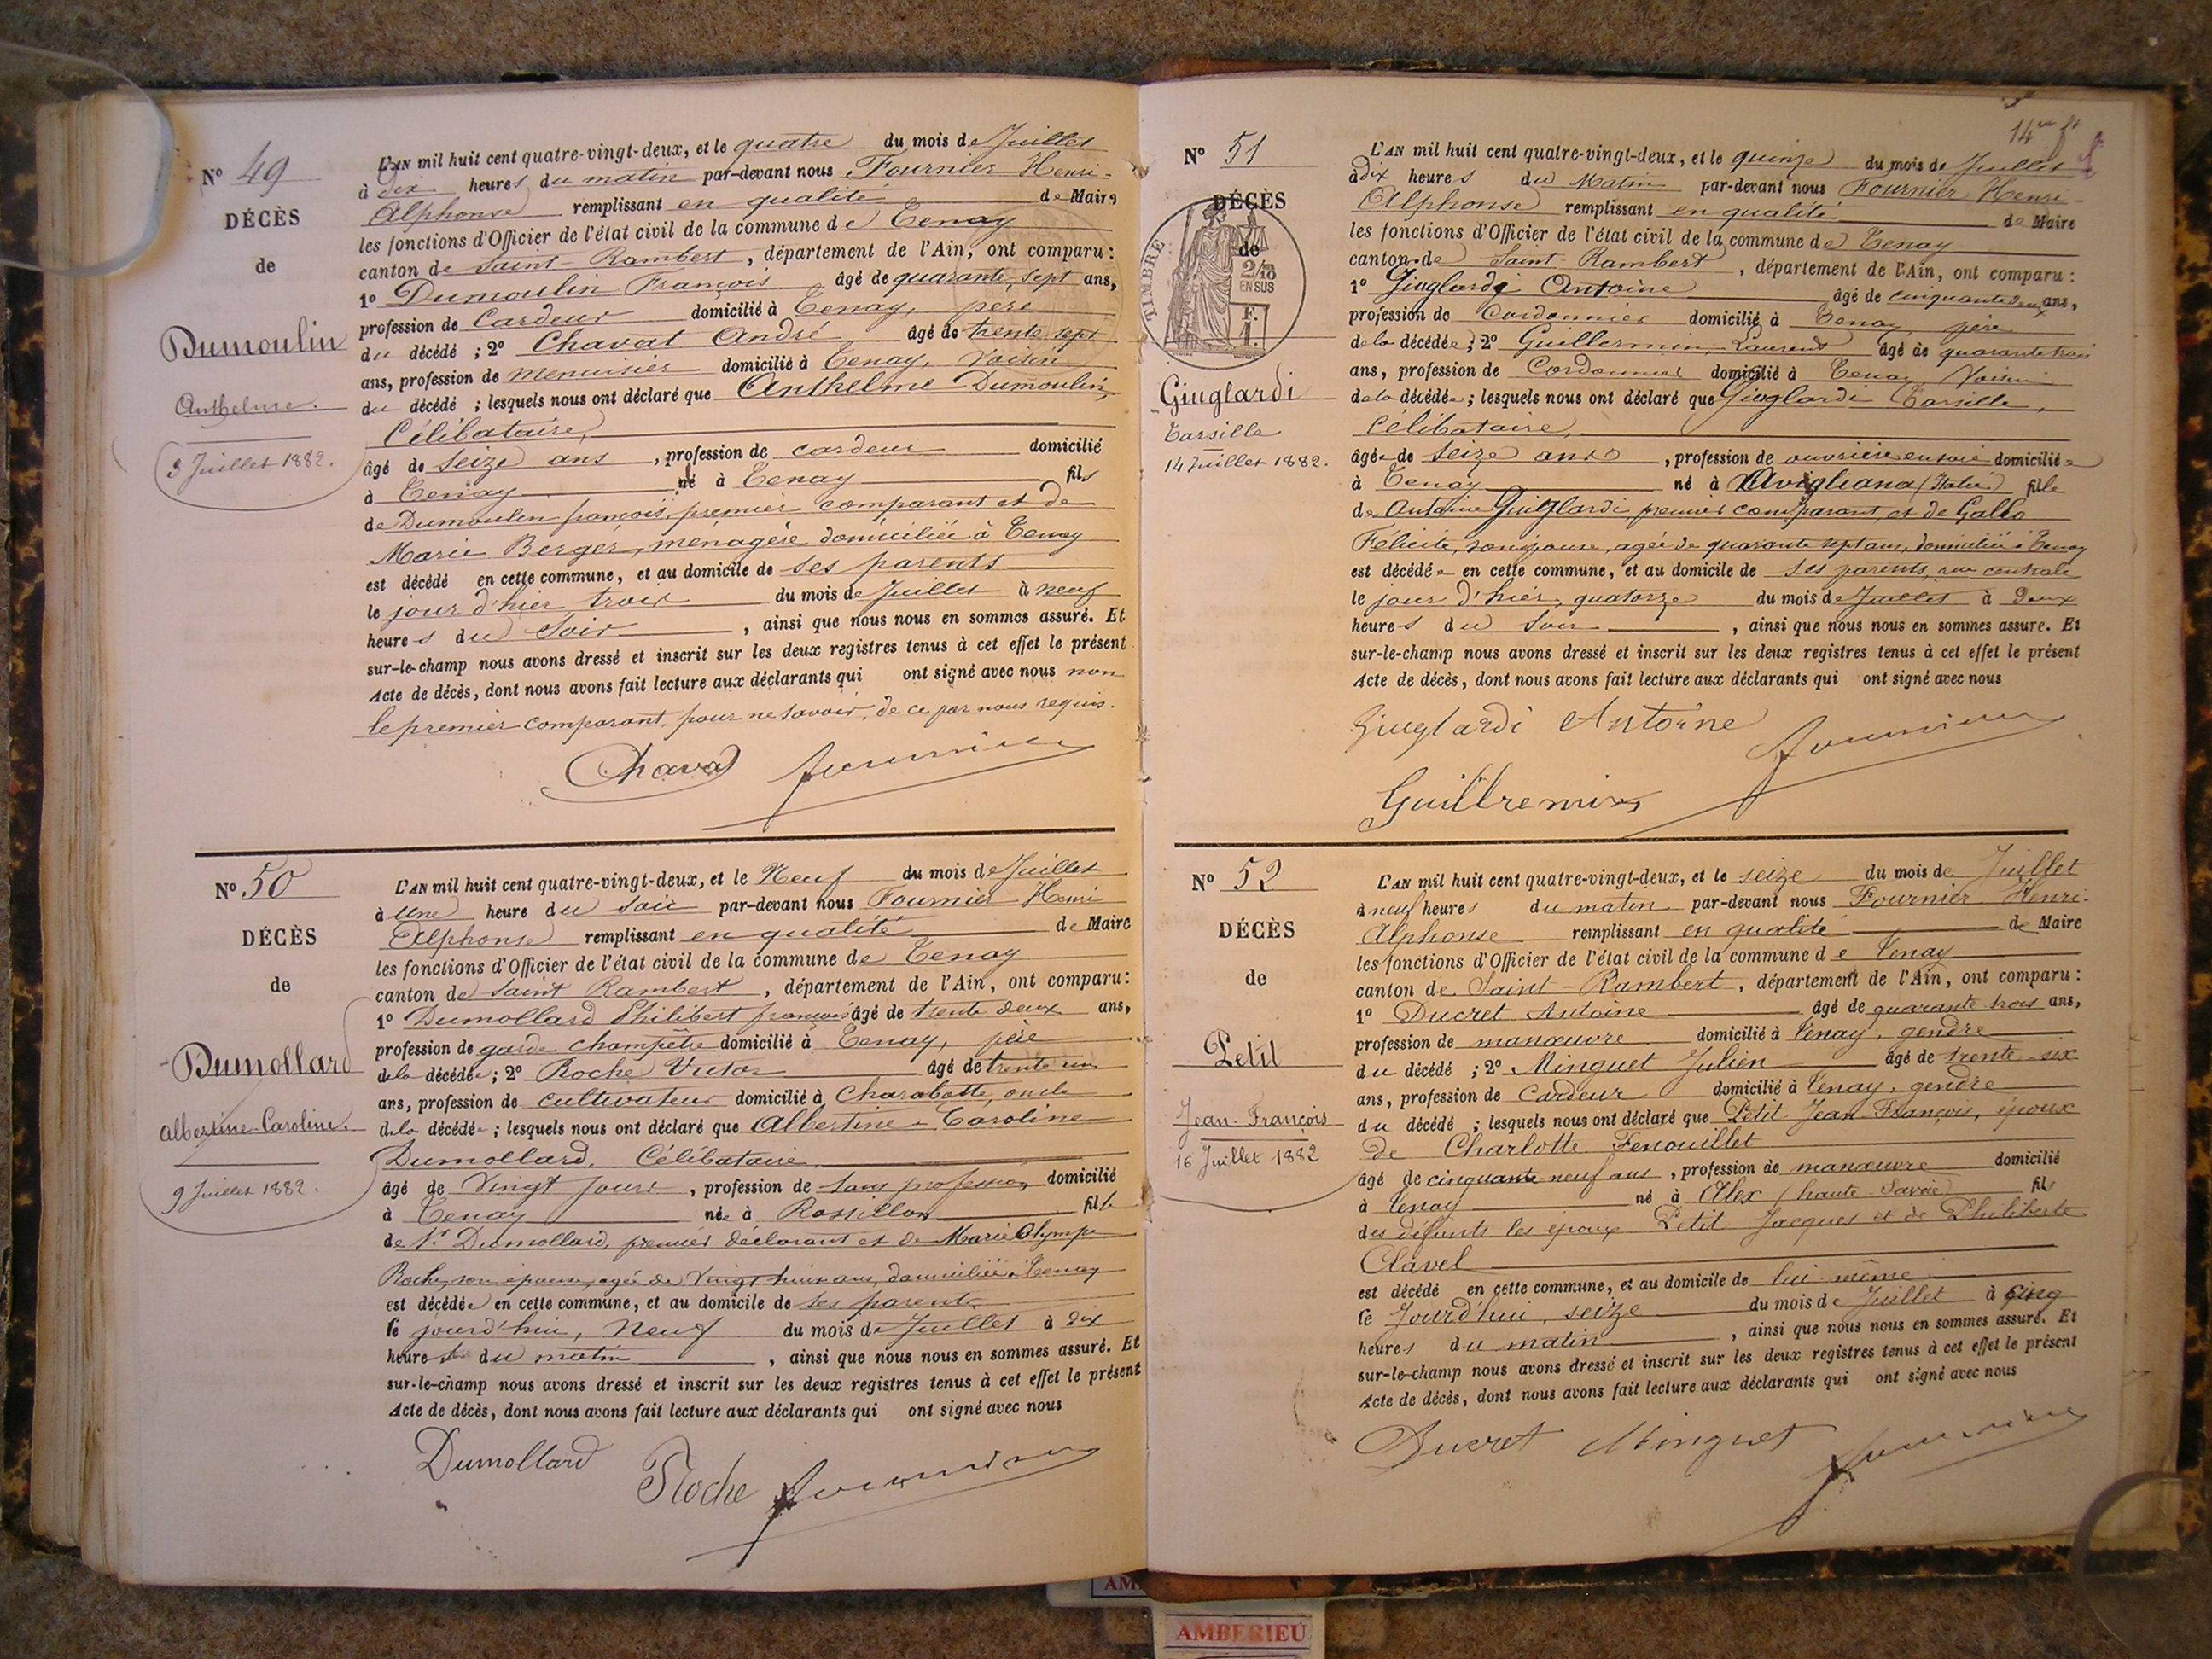 N° 49
DÉCÈS
de
Dumoulin
Anthelme.
3 Juillet 1882.
L'AN mil huit cent quatre-vingt-deux, et le quatre du mois de Juillet
à dix heures du matin par-devant nous Fournier Henri-
Alphonse remplissant en qualité de Maire
les fonctions d'Officier de l'état civil de la commune de Tenay
canton de Saint-Rambert, département de l'Ain, ont comparu:
1° Dumoulin François âgé de quarante-sept ans,
profession de Cardeur domicilié à Tenay, père
du décédé ; 2° Chavat André âgé de trente-sept
ans, profession de menuisier domicilié à Tenay, Voisin
du décédé ; lesquels nous ont déclaré que Anthelme Dumoulin,
Célibataire,
âgé de Seize ans, profession de cardeur domicilié
à Tenay né à Tenay fils
de Dumoulin françois, premier comparant et de
Marie Berger, ménagère domiciliée à Tenay
est décédé en cette commune, et au domicile de ses parents
le jour d'hier, trois du mois de Juillet à neuf
heures du Soir, ainsi que nous nous en sommes assuré. Et
sur-le-champ nous avons dressé et inscrit sur les deux registres tenus à cet effet le présent
Acte de décès, dont nous avons fait lecture aux déclarants qui ont signé avec nous non
le premier comparant, pour ne savoir, de ce par nous requis.
Chavat Fournier
N° 50
DÉCÈS
de
Dumollard
Albertine-Caroline.
9 Juillet 1882.
L'AN mil huit cent quatre-vingt-deux, et le Neuf du mois de Juillet
à Une heure du Soir par-devant nous Fournier Henri
Alphonse remplissant en qualité de Maire
les fonctions d'Officier de l'état civil de la commune de Tenay
canton de Saint Rambert, département de l'Ain, ont comparu:
1° Dumollard Philibert françois âgé de trente deux ans,
profession de garde champêtre domicilié à Tenay, père
de la décédée ; 2° Roche Victor âgé de trente un
ans, profession de cultivateur domicilié à Charabotte, oncle
de la décédée ; lesquels nous ont déclaré que Albertine-Caroline
Dumollard, Célibataire
âgé de Vingt jours, profession de Sans profession domicilié
à Tenay née à Rossillon fille
de Pt Dumollard, premier déclarant et de Marie Olympe
Roche, son épouse, agée de Vingt huit ans, domiciliée à Tenay
est décédée en cette commune, et au domicile de ses parents
le jourd'hui, Neuf du mois de Juillet à dix
heures du matin, ainsi que nous nous en sommes assuré. Et
sur-le-champ nous avons dressé et inscrit sur les deux registres tenus à cet effet le présent
Acte de décès, dont nous avons fait lecture aux déclarants qui ont signé avec nous
Dumollard Roche Fournier
14
N° 51
DÉCÈS
de
TIMBRE
2/10
EN SUS
F.
1.
Giuglardi
Tarsille
14 Juillet 1882.
L'AN mil huit cent quatre-vingt-deux, et le quinze du mois de Juillet
à dix heures du Matin par-devant nous Fournier Henri-
Alphonse remplissant en qualité de Maire
les fonctions d'Officier de l'état civil de la commune de Tenay
canton de Saint-Rambert, département de l'Ain, ont comparu:
1° Giuglardi Antoine âgé de cinquante deux ans,
profession de Cordonnier domicilié à Tenay, père
de la décédée ; 2° Guillermin, Laurent âgé de quarante trois
ans, profession de Cordonnier domicilié à Tenay Voisin
de la décédée ; lesquels nous ont déclaré que Giuglardi Tarsille,
Célibataire,
âgée de Seize ans, profession de ouvrière en soie domiciliée
à Tenay né à Avigliana (Italie) fille
de Antoine Giuglardi premier comparant, et de Gallo
Félicité, son épouse, agée de quarante sept ans, domiciliée à Tenay
est décédée en cette commune, et au domicile de ses parents, rue centrale
le jour d'hier, quatorze du mois de Juillet à Deux
heures du Soir, ainsi que nous nous en sommes assuré. Et
sur-le-champ nous avons dressé et inscrit sur les deux registres tenus à cet effet le présent
Acte de décès, dont nous avons fait lecture aux déclarants qui ont signé avec nous
Giuglardi Antoine Fournier
Guillremin
N° 52
DÉCÈS
de
Petit
Jean-François
16 Juillet 1882
L'AN mil huit cent quatre-vingt-deux, et le seize du mois de Juillet
à neuf heures du matin par-devant nous Fournier Henri-
Alphonse remplissant en qualité de Maire
les fonctions d'Officier de l'état civil de la commune de Tenay
canton de Saint-Rambert, département de l'Ain, ont comparu:
1° Ducret Antoine âgé de quarante trois ans,
profession de manœuvre domicilié à Tenay, gendre
du décédé ; 2° Minguet Julien âgé de trente-six
ans, profession de Cardeur domicilié à Tenay, gendre
du décédé ; lesquels nous ont déclaré que Petit Jean François, époux
de Charlotte Fenouillet
âgé de cinquante neuf ans, profession de manœuvre domicilié
à Tenay né à Alex (haute Savoie) fils
des défunts les époux Petit Jacques et de Philiberte
Clavel
est décédé en cette commune, et au domicile de lui-même
le Jourd'hui, seize du mois de Juillet à cinq
heures du matin, ainsi que nous nous en sommes assuré. Et
sur-le-champ nous avons dressé et inscrit sur les deux registres tenus à cet effet le présent
Acte de décès, dont nous avons fait lecture aux déclarants qui ont signé avec nous
Ducret Minguet Fournier
AMBERIEU